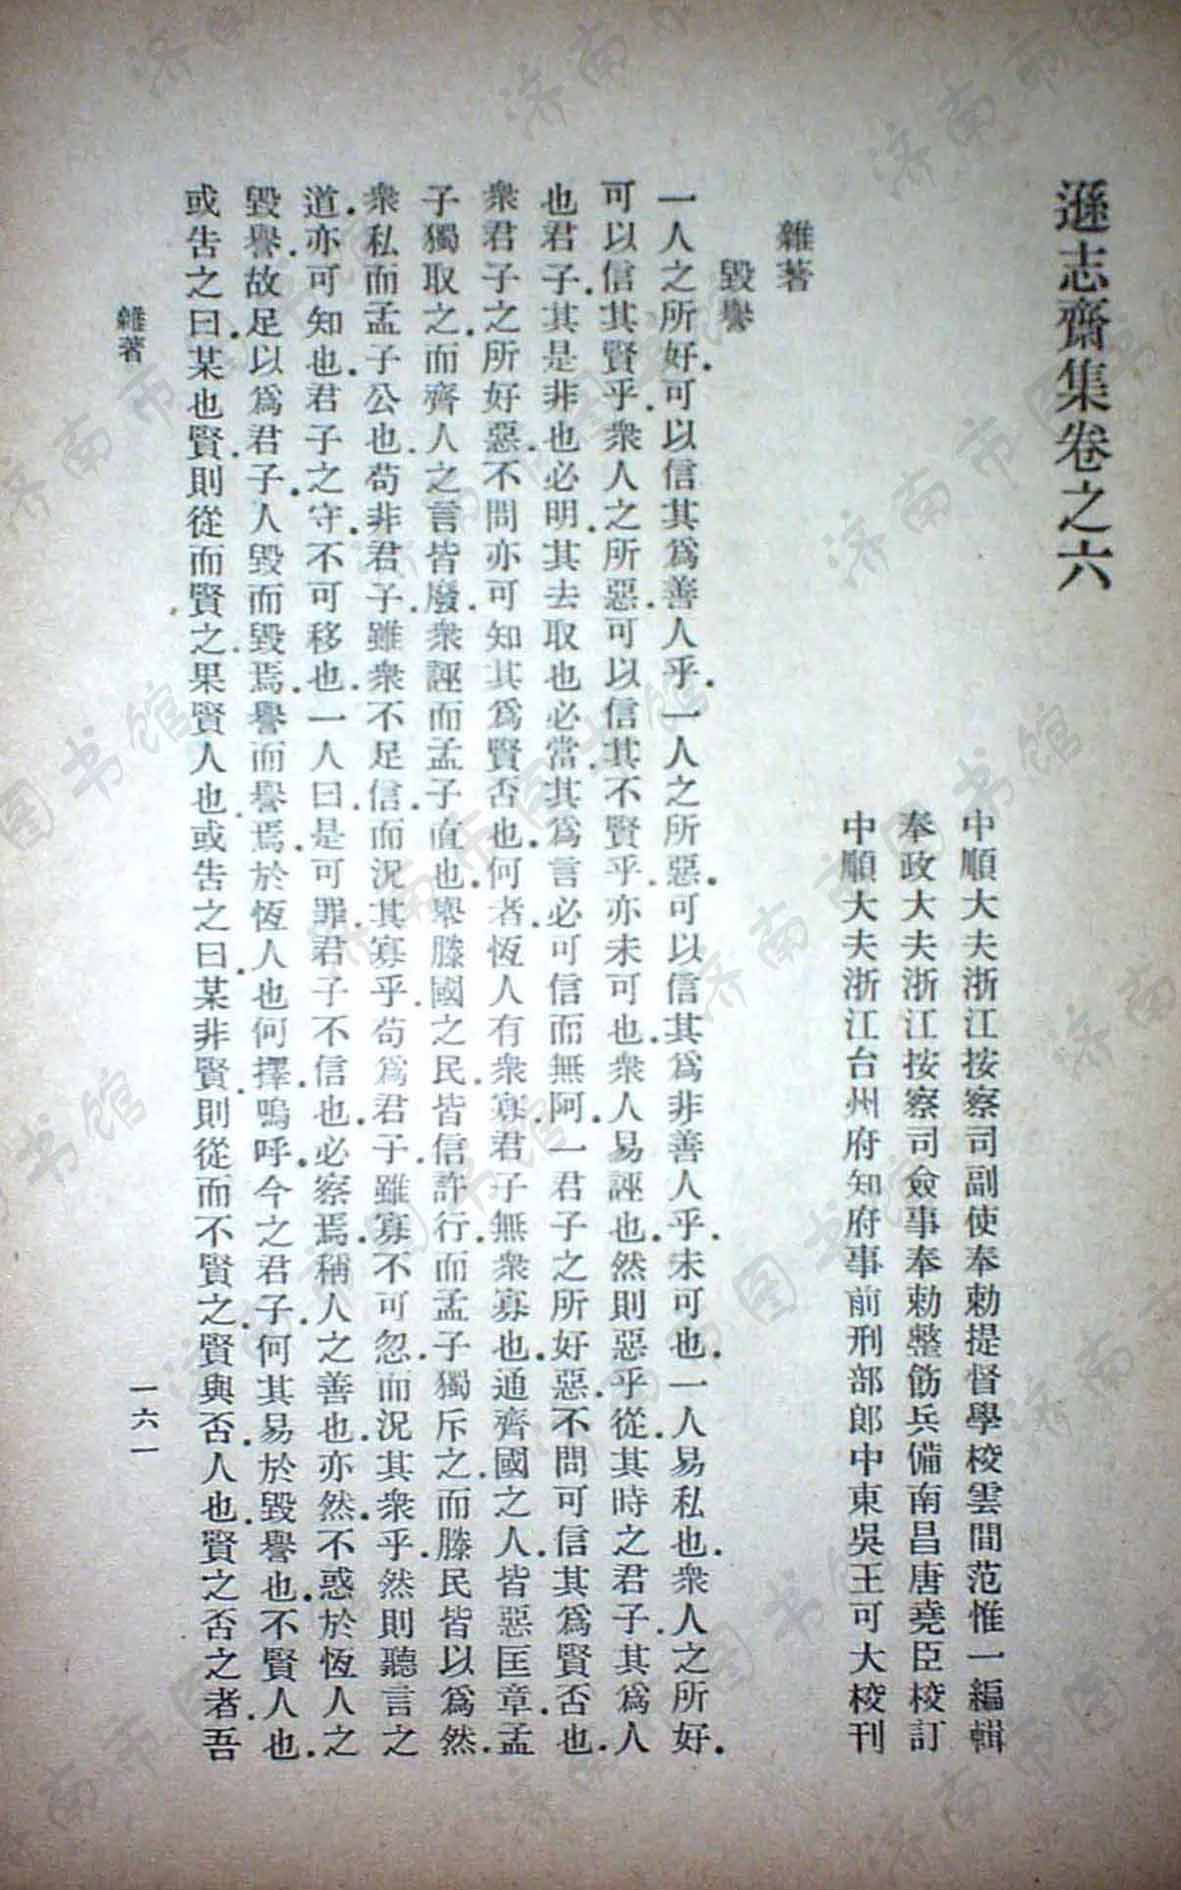 遜志齋集卷之六
中順大夫浙江按察司副使奉勅提督學校雲間范惟一編輯
奉政大夫浙江按察司僉事奉勅整飭兵備南昌唐堯臣校訂
中順大夫浙江台州府知府事前刑部郎中東吳王可大校刊
雜著
毀譽
一人之所好.可以信其爲善人乎.一人之所惡.可以信其爲非善人乎.未可也.一人易私也.衆人之所好.
可以信其賢乎.衆人之所惡.可以信其不賢乎.亦未可也.衆人易誣也.然則惡乎從.其時之君子.其爲人
也君子.其是非也必明.其去取也必當.其爲言必可信而無阿.一君子之所好惡.不問可信其爲賢否也.
衆君子之所好惡.不問亦可知其爲賢否也.何者.恆人有衆寡.君子無衆寡也.通齊國之人.皆惡匡章.孟
子獨取之.而齊人之言皆廢.衆誣而孟子直也.舉滕國之民.皆信許行.而孟子獨斥之.而滕民皆以爲然.
衆私而孟子公也.苟非君子.雖衆不足信.而況其寡乎.苟爲君子.雖寡不可忽.而況其衆乎.然則聽言之
道.亦可知也.君子之守.不可移也.一人曰.是可罪.君子不信也.必察焉.稱人之善也.亦然.不惑於恆人之
毀譽.故足以爲君子.人毀而毀焉.譽而譽焉.於恆人也何擇.嗚呼.今之君子.何其易於毀譽也.不賢人也.
或告之曰.某也賢.則從而賢之.果賢人也.或告之曰.某非賢.則從而不賢之.賢與否.人也.賢之否之者.吾
雜著
一六一
济南市图书馆